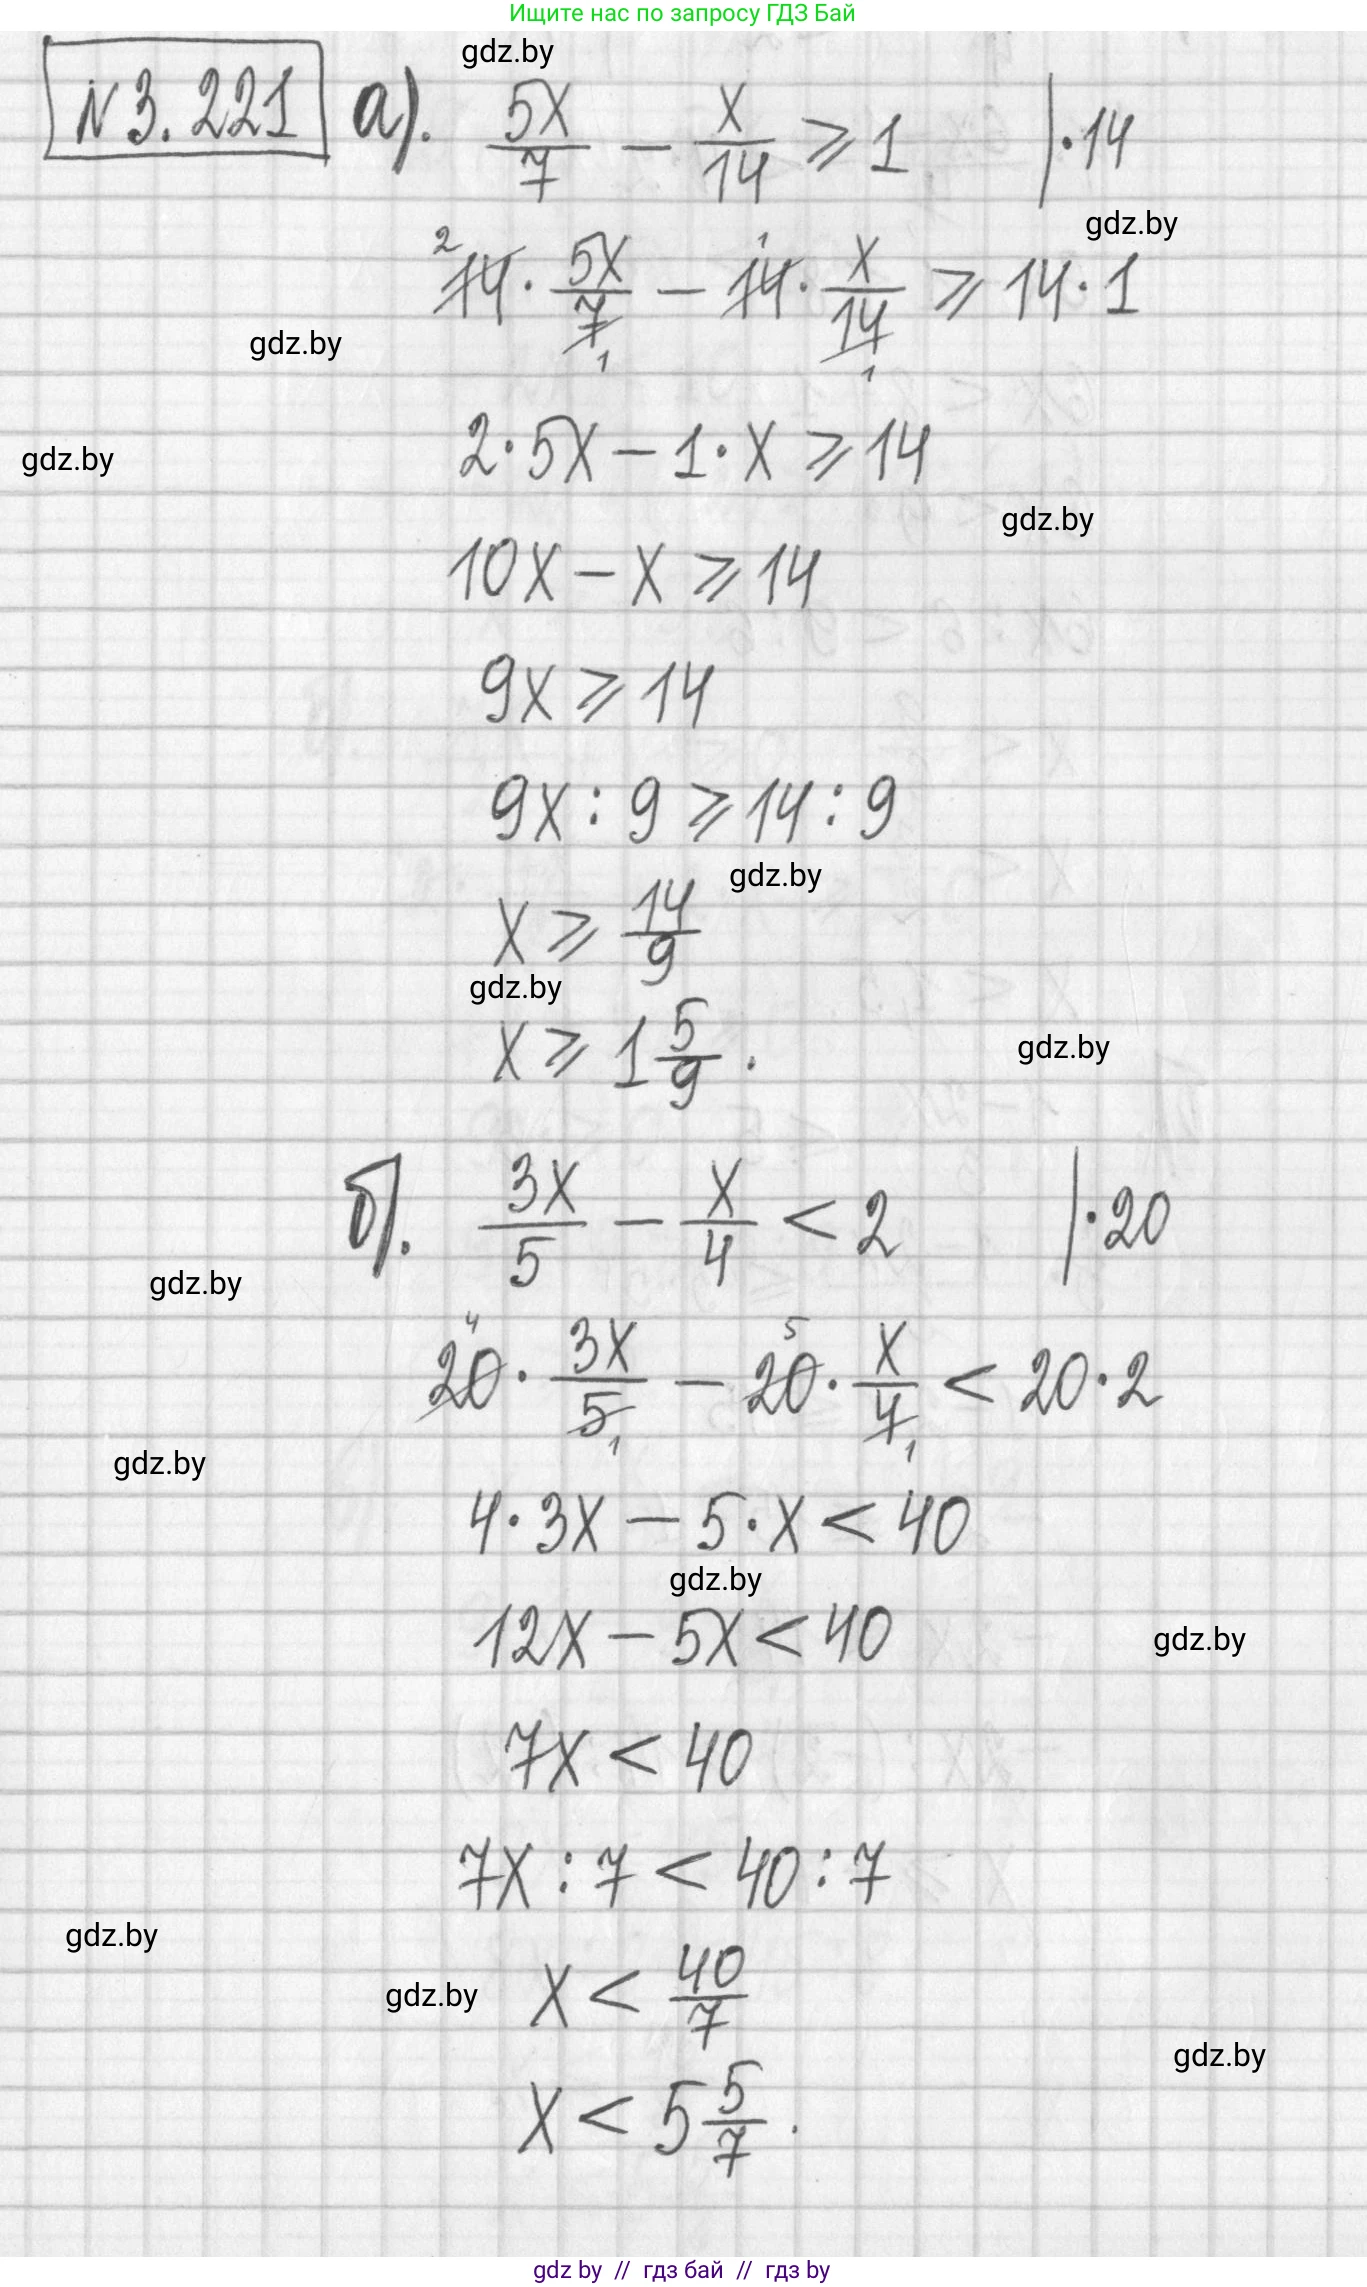 Ищите нас по запросу ГДЗ Бай
gdz.by
№ 3.221 а). 5x/7 − x/14 ⩾ 1 | · 14
gdz.by
2 1
14 · 5x/7 − 14 · x/14 ⩾ 14 · 1
1 1
gdz.by
2 · 5x − 1 · x ⩾ 14
gdz.by
gdz.by
10x − x ⩾ 14
9x ⩾ 14
9x : 9 ⩾ 14 : 9
gdz.by
x ⩾ 14/9
gdz.by
x ⩾ 1 5/9 .
gdz.by
б). 3x/5 − x/4 < 2 | · 20
gdz.by
4 5
20 · 3x/5 − 20 · x/4 < 20 · 2
1 1
gdz.by
4 · 3x − 5 · x < 40
gdz.by
12x − 5x < 40
gdz.by
7x < 40
7x : 7 < 40 : 7
gdz.by
x < 40/7
gdz.by
gdz.by
x < 5 5/7 .
gdz by // гдз бай // гдз by